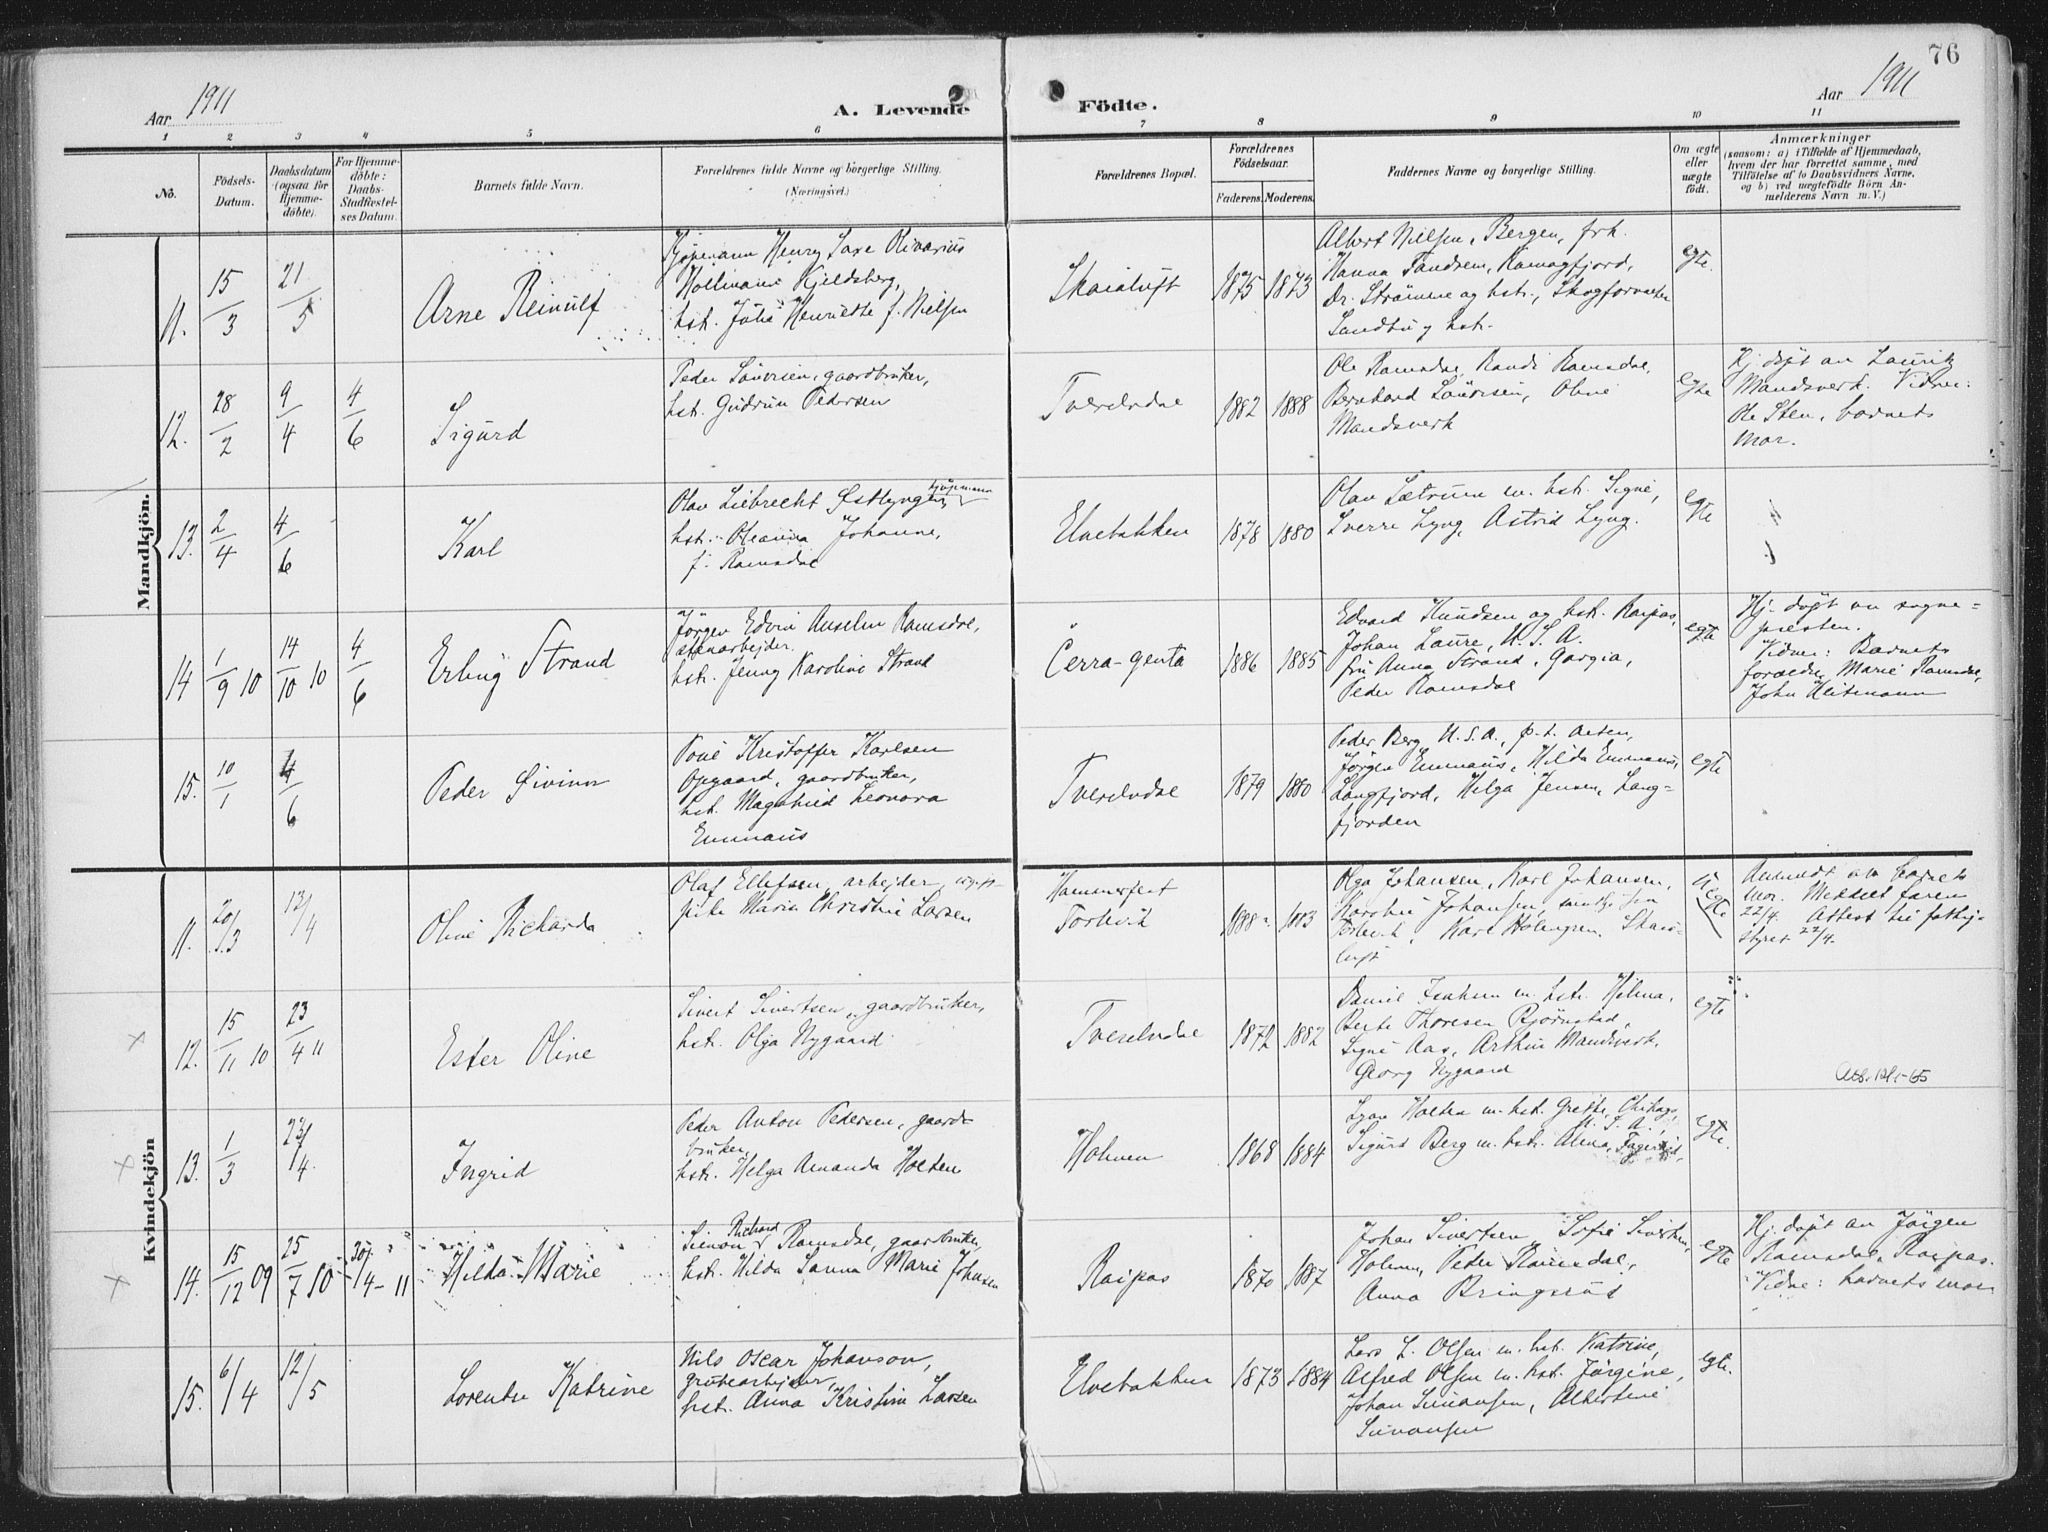 76
Aar 1911
A. Levende Födte.
Aar 1911
1 2 3 4 5 6 7 8 9 10 11
No.
Födsels-Datum.
Daabsdatum (ogsaa for Hjemmedöbte).
For Hjemmedöbte: Daabs-Stadfæstelses Datum.
Barnets fulde Navn.
Forældrenes fulde Navne og borgerlige Stilling. (Næringsvei.)
Forældrenes Bopæl.
Forældrenes Födselsaar.
Faderens. Moderens.
Faddernes Navne og borgerlige Stilling.
Om ægte eller uægte födt.
Anmærkninger
(saasom: a) i Tilfælde af Hjemmedaab, hvem der har forrettet samme, med Tilföielse af to Daabsvidners Navne, og b) ved uægtefödte Börn Anmelderens Navn m. V.)
Mandkjön.
11. 15/3 21/5 Arne Reinulf
Kjøpmann Henry Olivarius
Kjeldsberg,
hst. Julie Henriette f. Nielsen
Skaialuft 1875 1873
Albert Nielsen, Bergen, frk.
Hanna Tandsem, Komagfjord,
Dr. Strømme og hst., Skogforvalter
Landbu g hst.
egte.
12. 28/2 9/4 4/6 Sigurd
Peder gaardbruker,
hst. Gudrun Pedersen
Tverelvdal 1882 1888
Ole Romsdal, Randi Romsdal,
Bernhard Oline
Mandsverk
egte
Hj. døpt av Lauritz
Mandsverk. Vidner:
Ole Sten, barnets
mor.
13. 2/4 4/6 Karl
Olav Liebrecht Østlyngen, kjøpmann
hst. Oleanna Johanne,
f. Romsdal
Elvebakken 1878 1880
Olav Sætrum m. hst. Signe,
Sverre Lyng, Astrid Lyng.
egte
14 1/9 10 14/10 10 4/6 Erling Strand
Jörgen Edvin Anselm Romsdal,
hst. Jenny Karoline Strand
Cerra-genta 1886 1885
Edvard Knudsen og hst. Raipas,
Johan Laure, U.S.A.
fru Anna Strand, Gargia,
Peder Romsdal
egte
Hj. døpt av sogne-
presten.
Vidner: Barnets
forældre, Marie Romsdal,
John
15. 10/1 4/6 Peder Eivinn
Kristoffer Karlsen
Opgaard, gaardbruker,
hst. Magnhild Leonora
Emmaus
Tverelvdal 1879 1880
Peder Berg, U.S.A., p.t. Alten,
Jörgen Emmaus, Hilda Emmaus,
Langfjord, Helga Jensen, Lang-
fjorden
egte
Kvindekjön
11. 20/3 17/4 Oline Richarda
Olaf Ellefsen, arbejder, ugift
pike Marie Christine Larsen
Hammerfest
Torhvik 1888 1883
Olga Johansen, Karl Johansen,
Johansen,
Karl Holmgren, Skaia-
luft
Uegte
Anmeldt av barnets
mor. Meddelt faren
22/4. Attest til fattig-
styret 22/4.
12. 15/11 10 23/4 11 Ester Oline
Sivert Sivertsen, gaardbruker,
hst. Olga Nygaard.
Tverelvdal 1872 1882
Daniel Isaksen m. hst. Hilma,
Berte Thoresen Bjørnstad,
Signe Aas, Arthur Mandsverk,
Georg Nygaard
egte
13. 1/3 23/4. Ingrid
Peder Anton Pedersen, gaard-
bruker,
hst. Helga Amanda Holten
Holmen 1868 1884
Holten m. hst. Grethe, Chikago,
U.S.A.,
Sigurd Berg m. hst. Alma,
egte.
14. 15/12 09 25/7 10 30/4-11 Hilda Marie
Simon Richard Romsdal, gaardbruker,
hst. Hilda Sanna Marie Johnsen
Raipas 1870 1887
Johan Sivertsen, Sofie Sivertsen,
Holmen, Peder Romsdal,
Anna Bringsrus
egte
Hj. døpt av Jörgen
Romsdal, Raipas.
Vidne: barnets mor
15. 6/4 12/5 Lorentse Katrine
Nils Oscar Johanson,
grubearbejder,
hst. Anna Kristine Larsen
Elvebakken 1873 1884
Lars L. Olsen m. hst. Katrine,
Alfred Olsen m. hst. Jörgine,
Johan Simonsen, Albertine
Simonsen
egte.